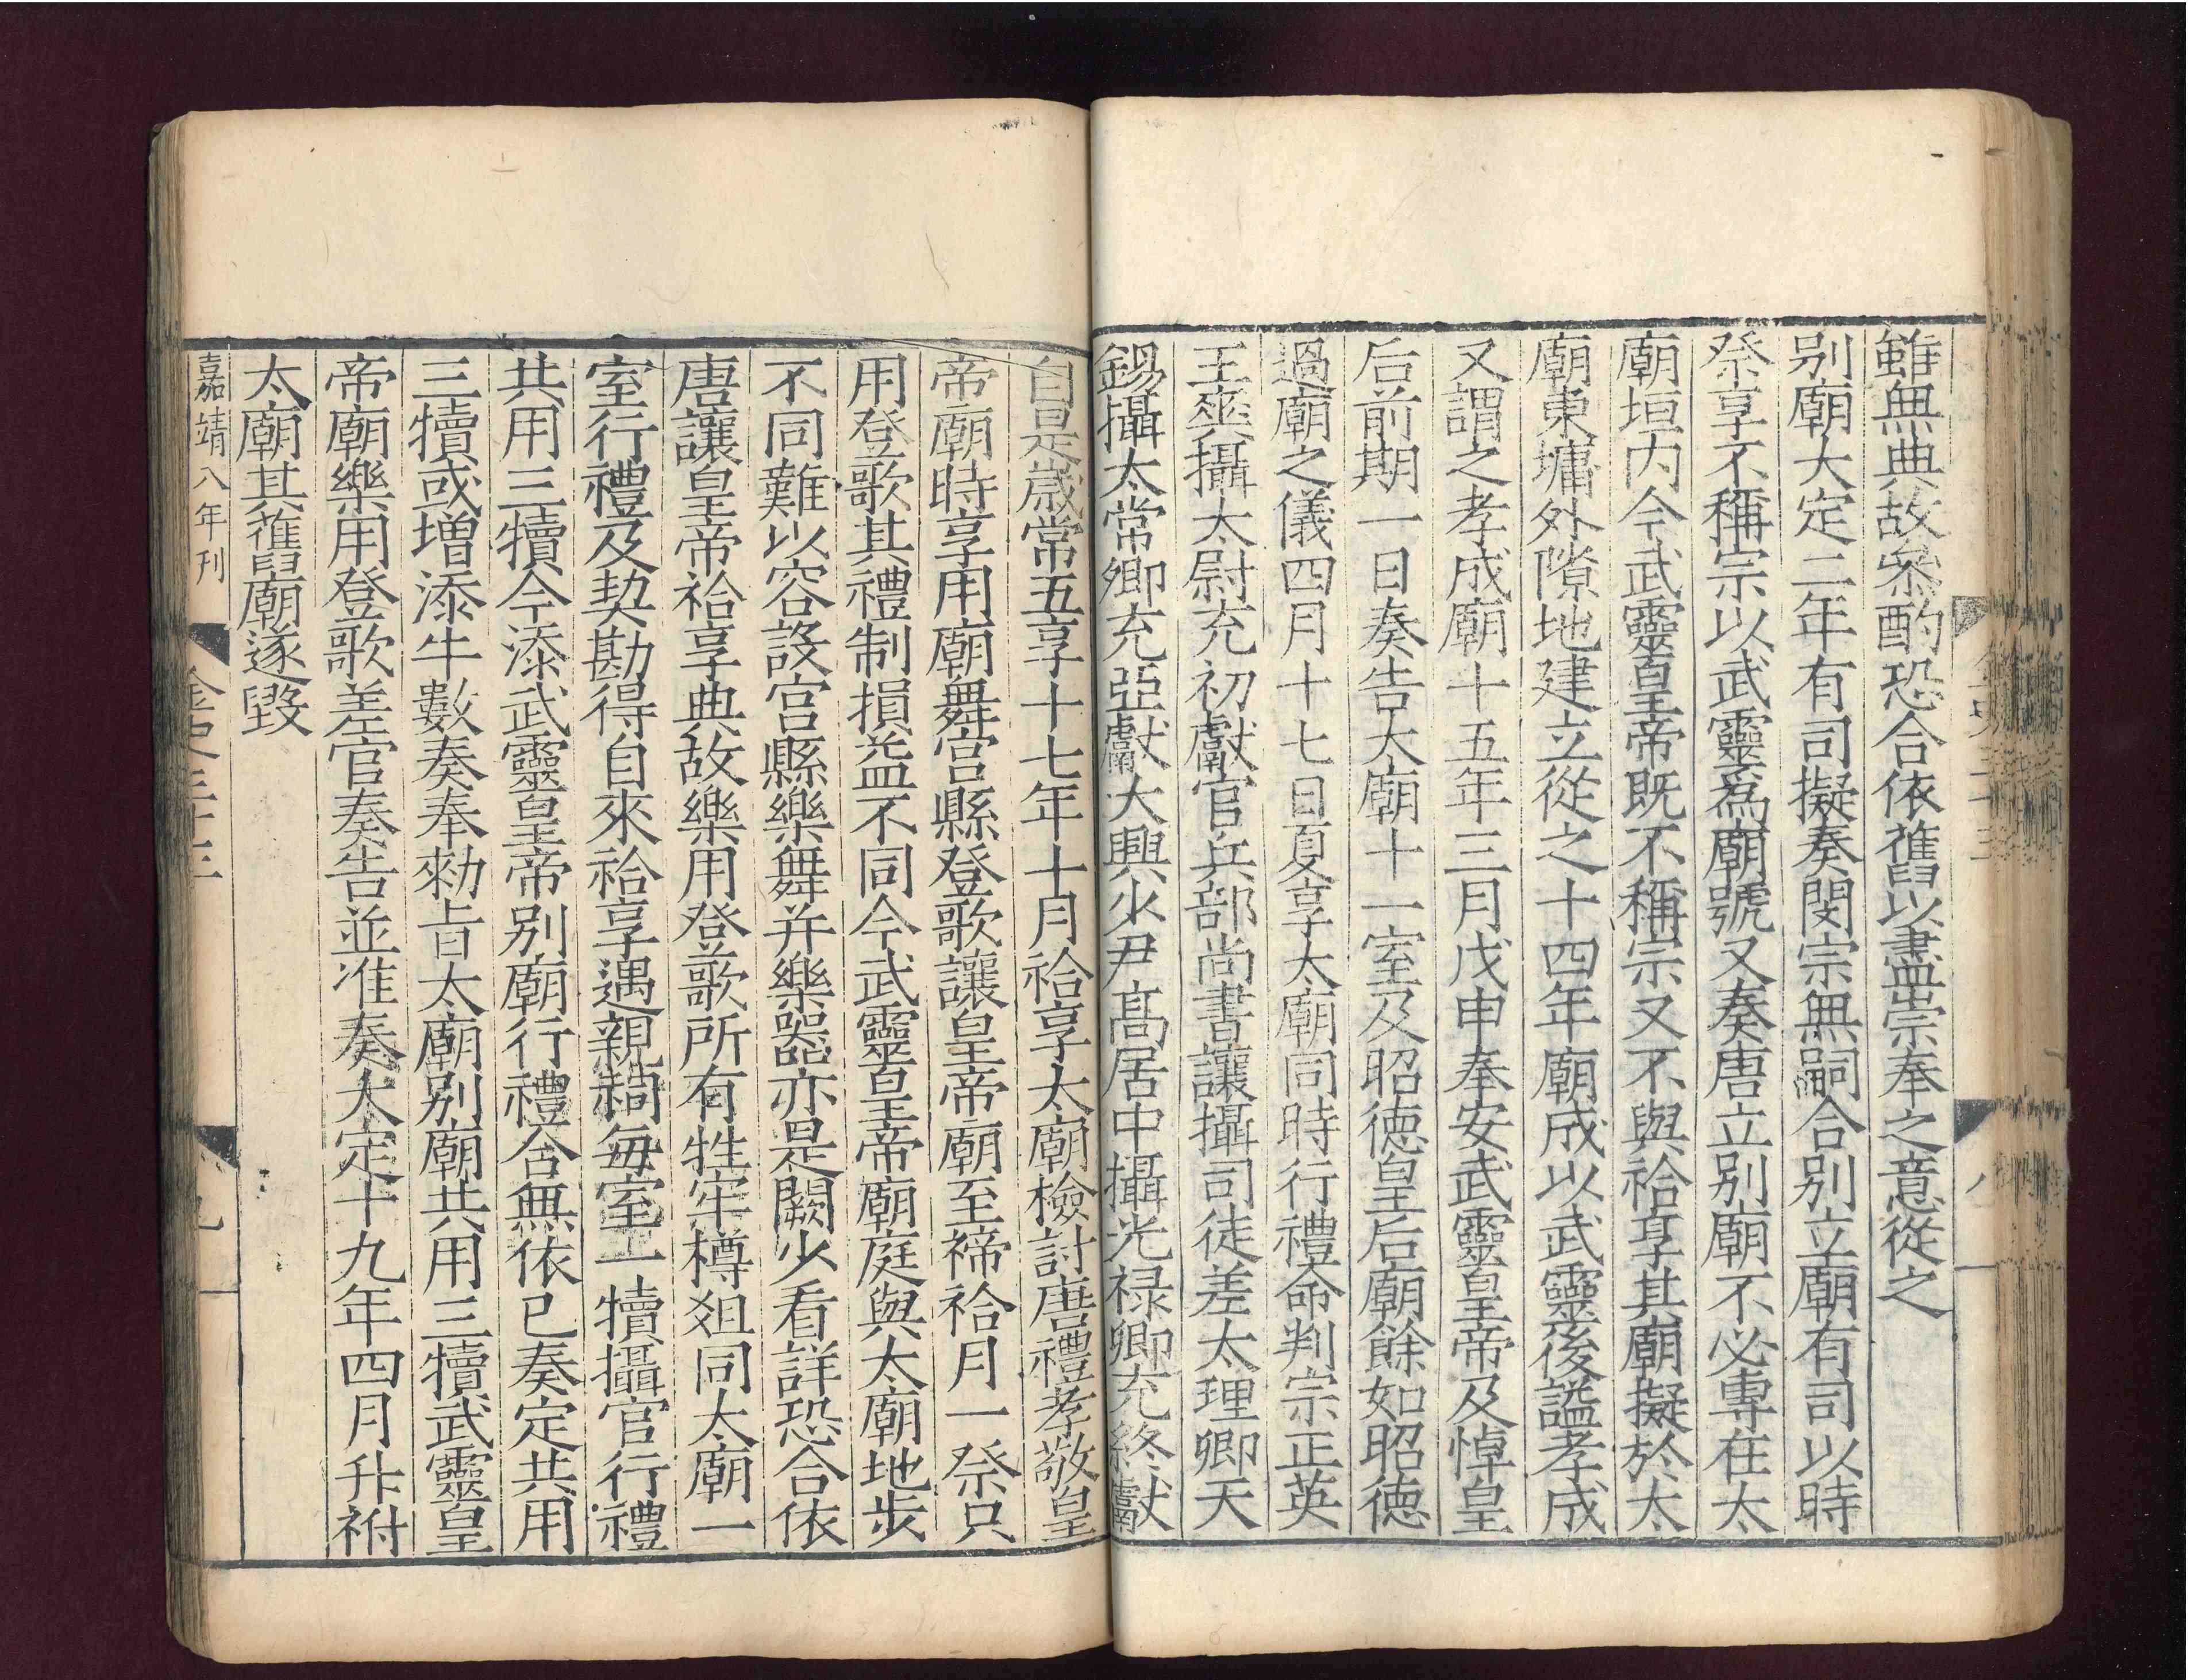 雖無典故叅酌恐合依舊以盡崇奉之意從之
别廟大定二年有司擬奏閔宗無嗣合别立廟有司以時
祭享不稱宗以武靈爲廟號又奏唐立别廟不必專在太
廟垣内今武靈皇帝既不稱宗又不與祫享其廟擬於太
廟東墉外隙地建立從之十四年廟成以武靈後謚孝成
又謂之孝成廟十五年三月戊申奉安武靈皇帝及悼皇
后前期一日奏告太廟十一室及昭德皇后廟餘如昭德
過廟之儀四月十七日夏享太廟同時行禮命判宗正英
王爽攝太尉充初獻官兵部尚書讓攝司徒差太理卿天
錫攝太常卿充亞獻大興少尹髙居中攝光禄卿充終獻
自是歲常五享十七年十月祫享太廟檢討唐禮孝敬皇
帝廟時享用廟舞宫縣登歌讓皇帝廟至禘祫月一祭只
用登歌其禮制損益不同今武靈皇帝廟庭與太廟地步
不同難以容設宫縣樂舞并樂器亦是闕少看詳恐合依
唐讓皇帝祫享典故樂用登歌所有牲牢樽俎同太廟一
室行禮及契勘得自來祫享遇親祠每室一犢攝官行禮
共用三犢今添武靈皇帝别廟行禮合無依已奏定共用
三犢或增添牛數奏奉勑旨太廟别廟共用三犢武靈皇
帝廟樂用登歌差官奏告並准奏大定十九年四月升祔
太廟其舊廟遂毀
嘉靖八年刊
金史三十三
九